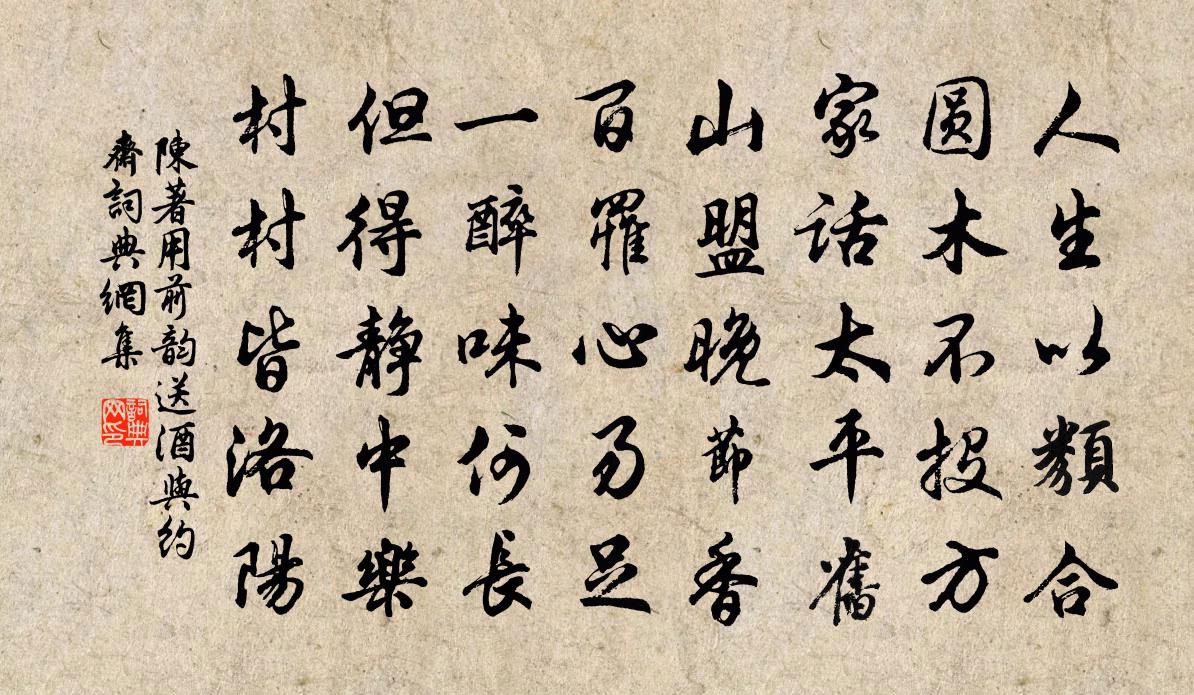 人生以類合
圓木不投方
家話太平舊
山盟晚節香
百罹心易足
一醉味何長
但得静中樂
村村皆洛陽
陳著用前韵送酒與約
齋詞典網集
詞典
网印